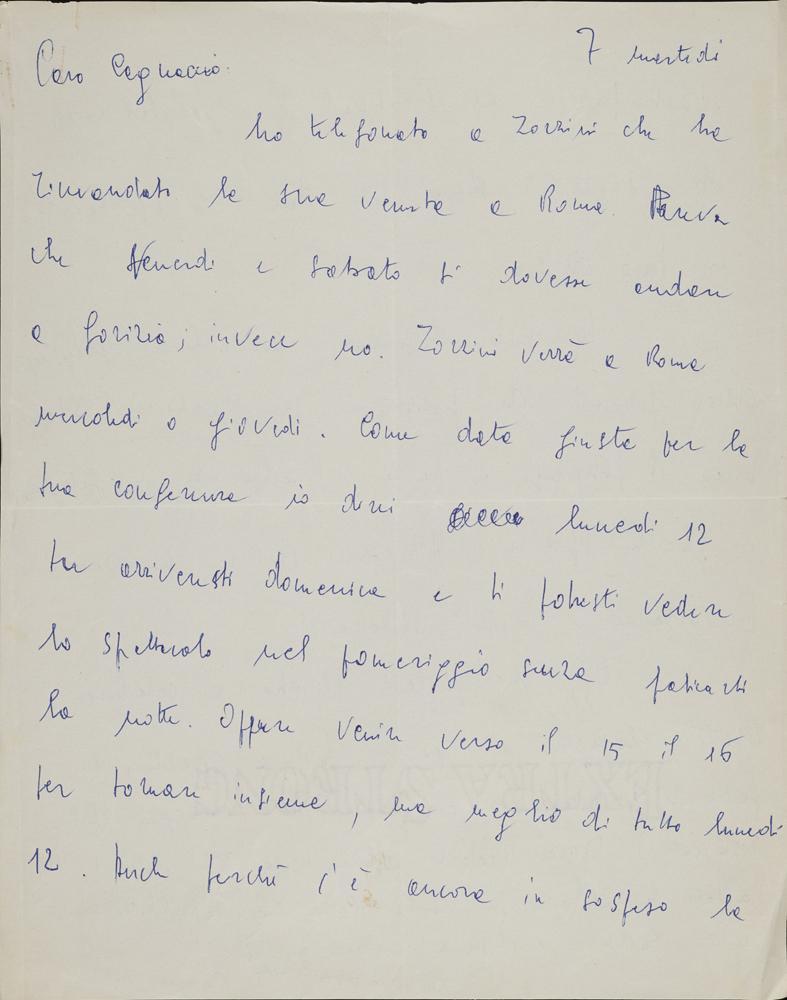 7 martedì
Caro Cegnaccio:
ho telefonato a Zorzini che ha
rimandato la sua venuta a Roma. Pareva
che Venerdì e Sabato si dovesse andare
a Gorizia; invece no. Zorzini verrà a Roma
mercoledì o giovedì. Come data giusta per la
tua conferenza io direi lunedì 12
tu arriveresti domenica e ti potresti vedere
lo spettacolo nel pomeriggio senza faticarti
la notte. Oppure venire verso il 15 il 16
per tornare insieme, ma meglio di tutto lunedì
12. Anche perchè c'è ancora in sospeso la